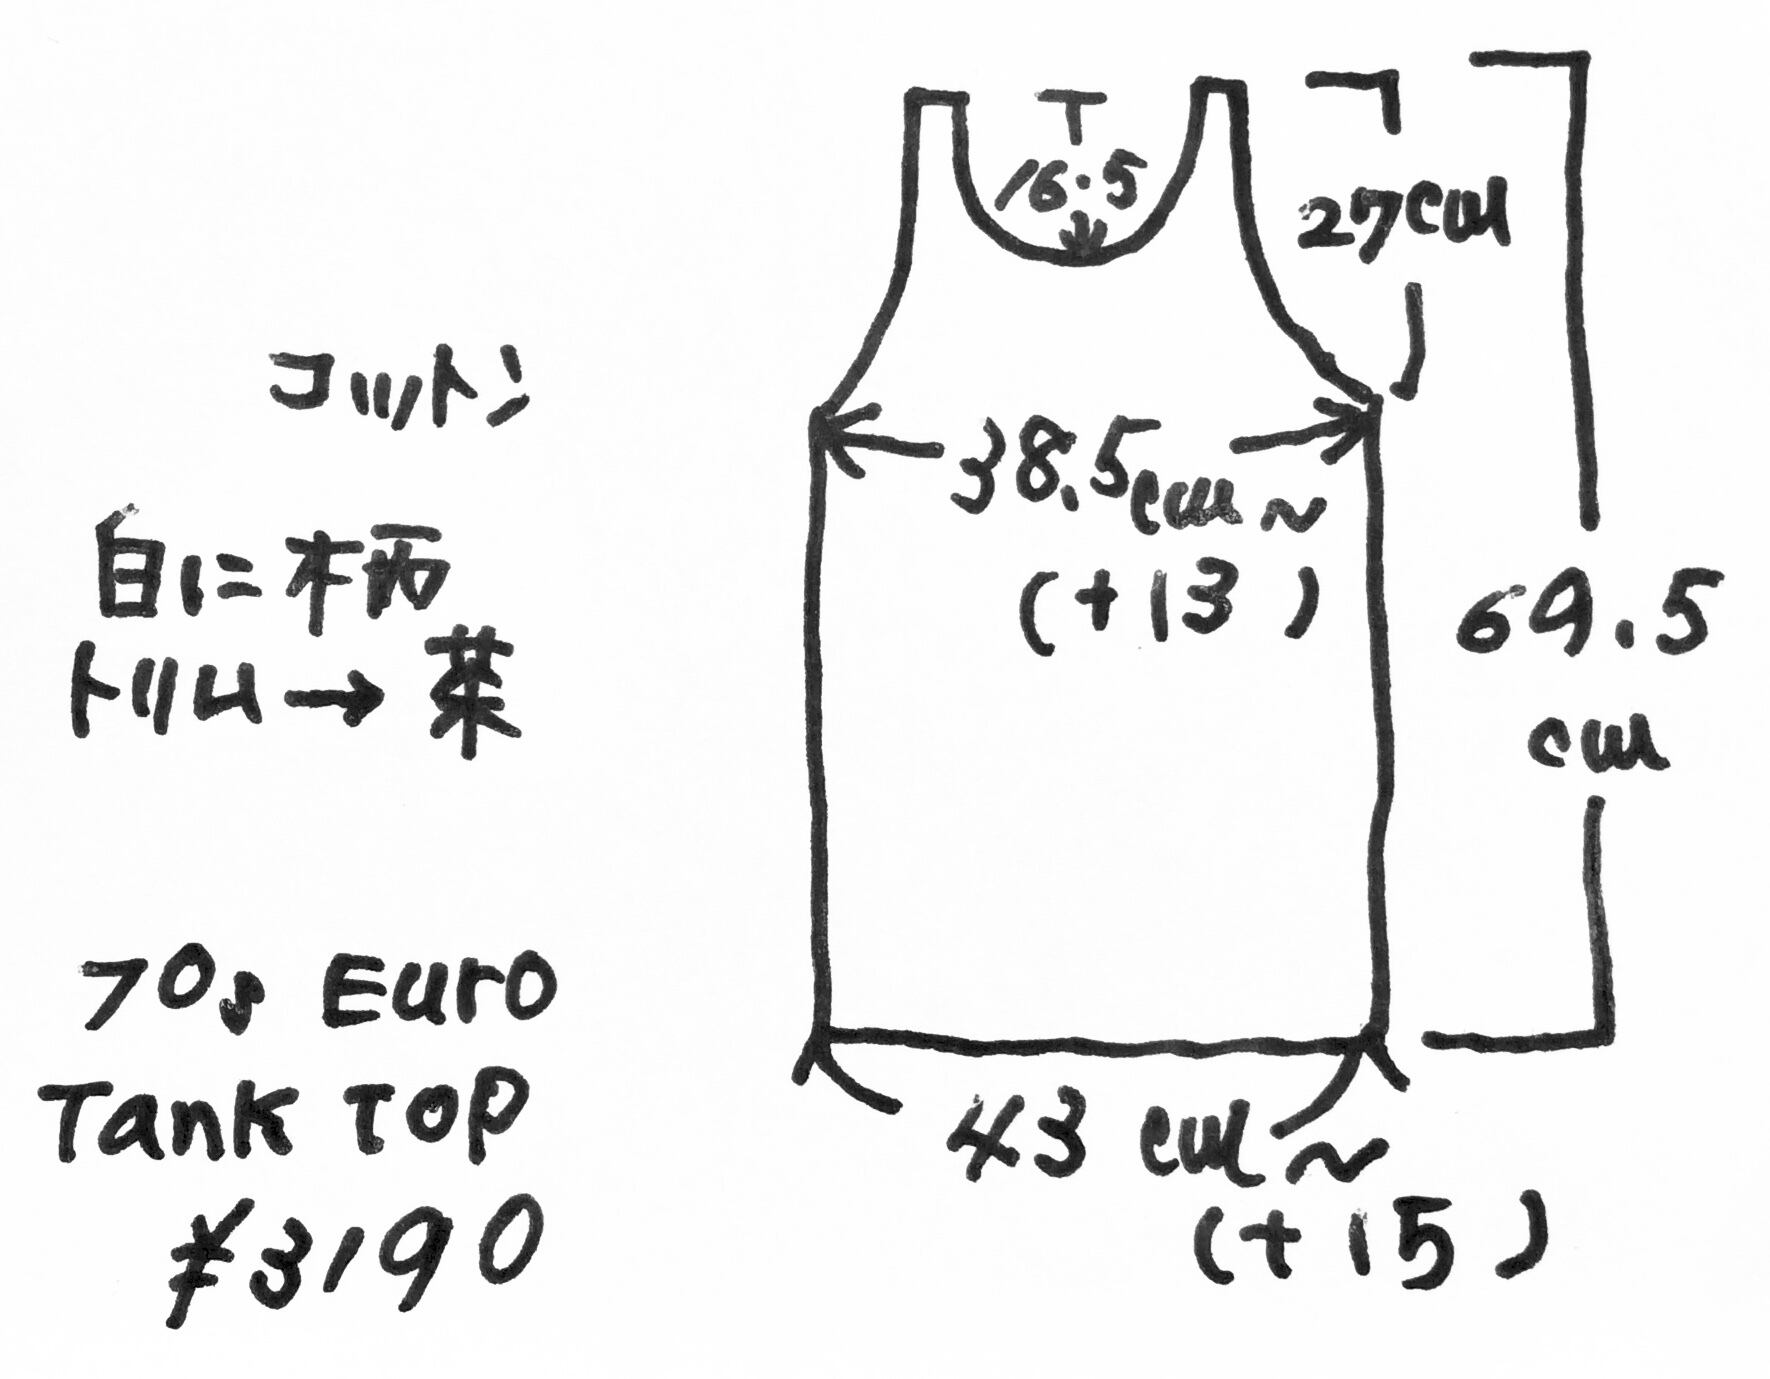 16.5
27cm
コットン
38.5cm~
(+13)
白に柄
トリム→茶
69.5
cm
70s Euro
Tank Top
43cm~
(+15)
¥3190